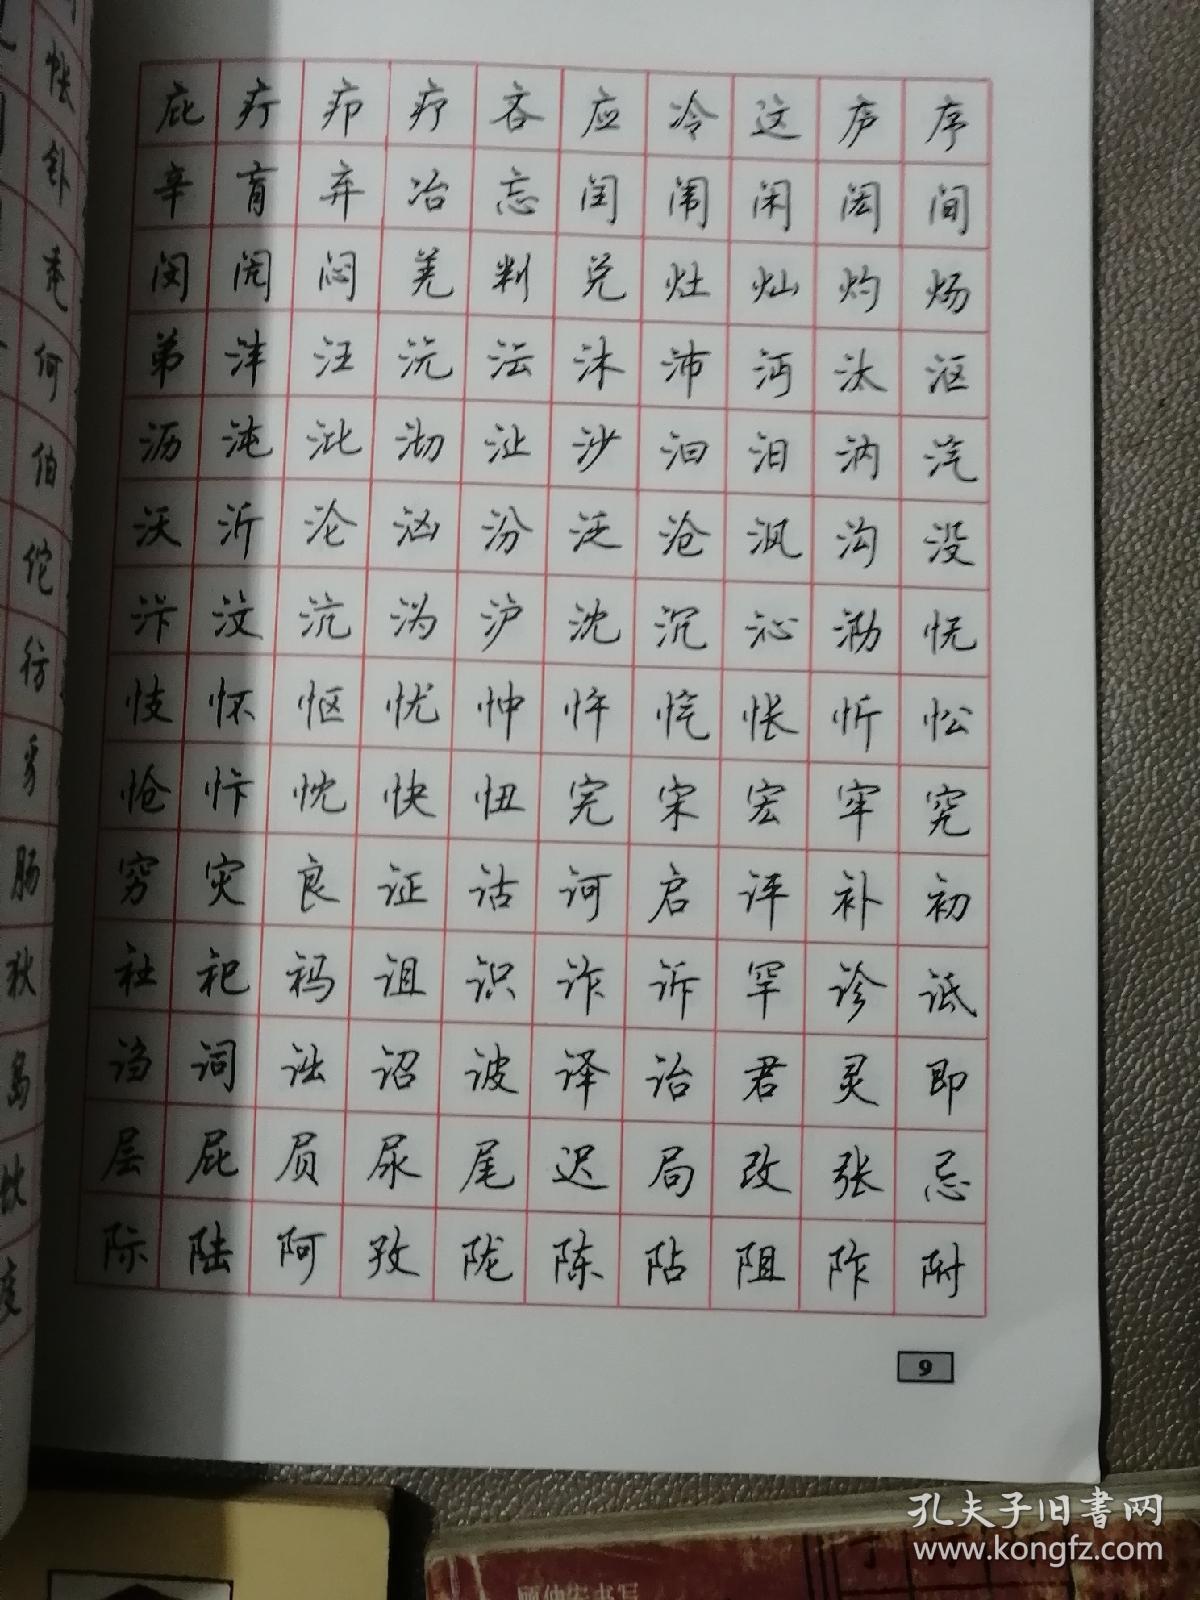 庇疔疖疗吝应冷这庐序
辛肓弃冶忘闰闱闲闳间
闵阌闷羌判兑灶灿灼炀
弟沣汪沅沄沐沛沔汰沤
沥沌沘沏沚沙汩汨汭汽
沃沂沦汹汾泛沧沨沟没
汴汶沆沩沪沈沉沁泐怃
忮怀怄忧忡忤忾怅忻忪
怆忭忱快忸完宋宏牢究
穷灾良证诂诃启评补初
社祀祃诅识诈诉罕诊诋
诌词诎诏诐译诒君灵即
层屁屃尿尾迟局改张忌
际陆阿孜陇陈阽阻阼附
9
怅
卦
何
伯
佗
彷
豸
肠
狄
岛
孔夫子旧书网
www.kongfz.com
顾仲安书写